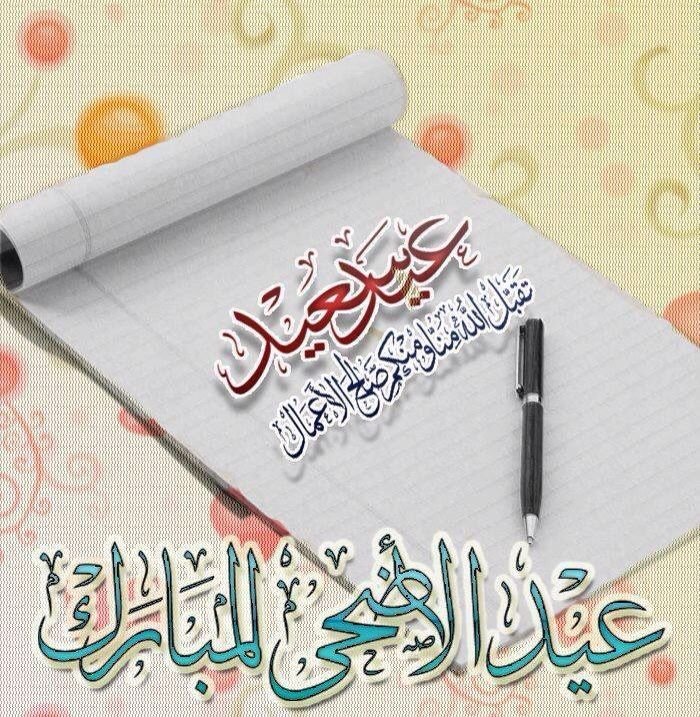 عيد سعيد
تقبل الله منا ومنكم صالح الأعمال
عيد الأضحى المبارك